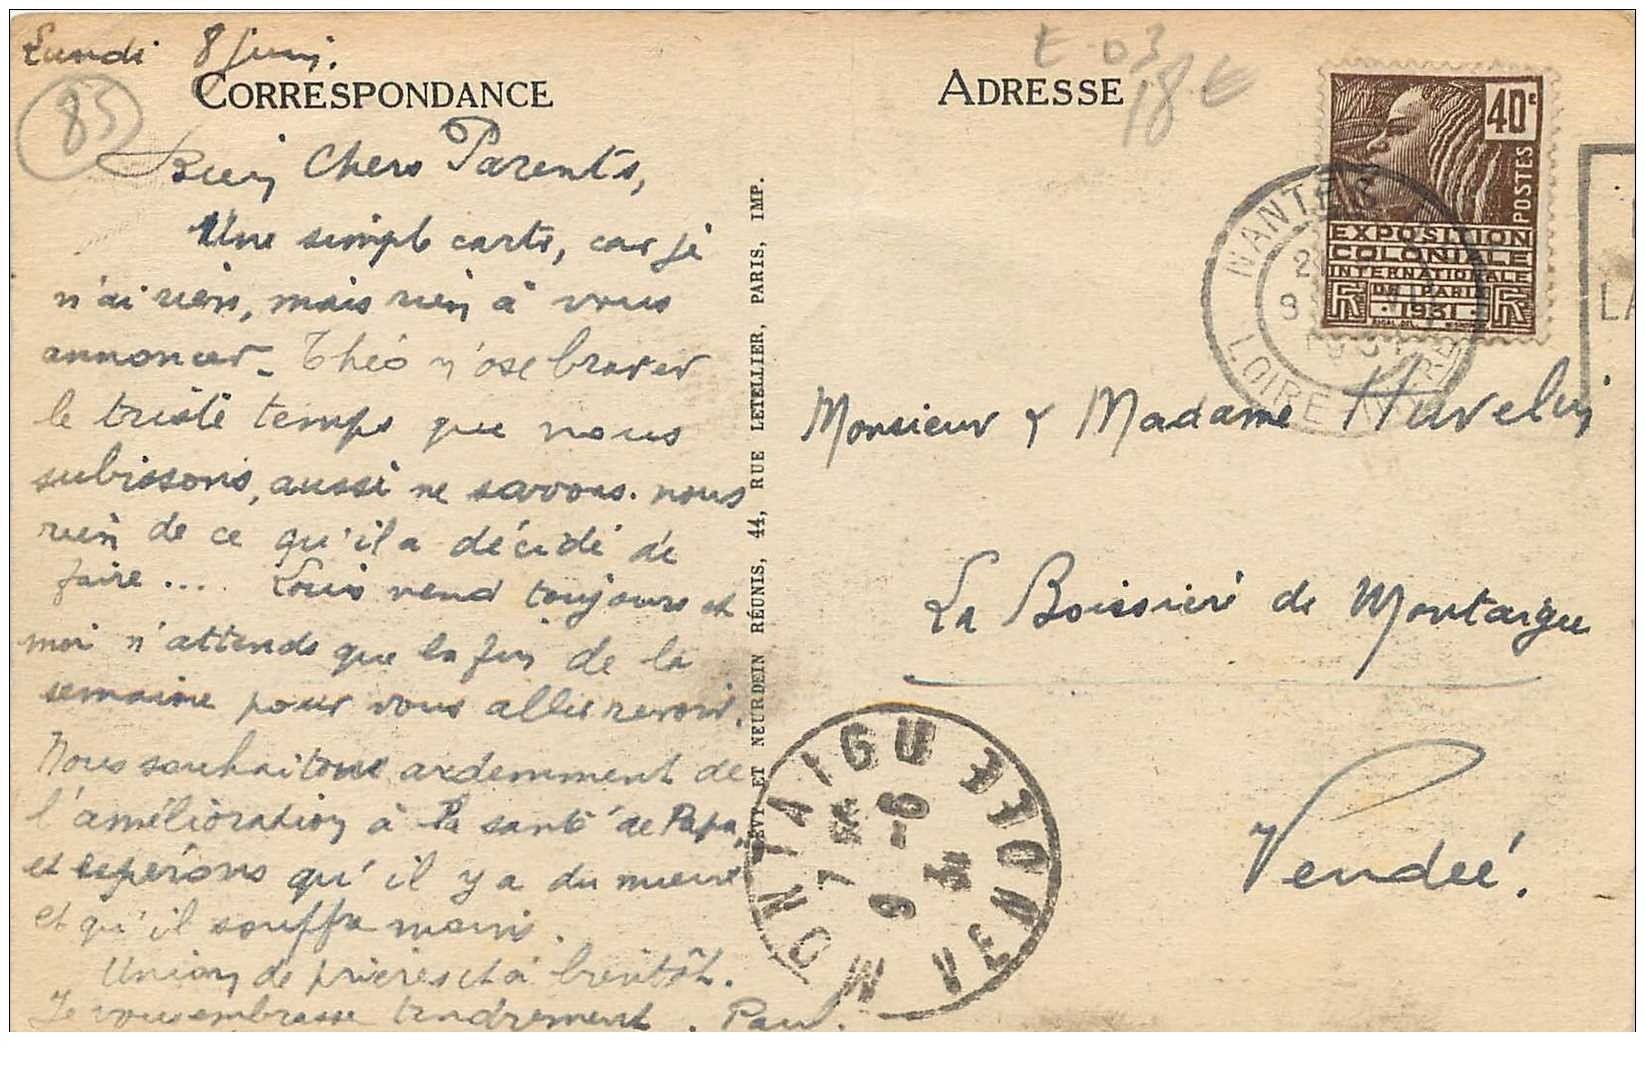 Lundi 8 juin.
85
CORRESPONDANCE
Bien Chers Parents,
Une simple carte, car je
n'ai rien, mais rien à vous
annoncer - Théo n'ose braver
le triste temps que nous
subissons, aussi ne savons-nous
rien de ce qu'il a décidé de
faire ... Louis vend toujours et
moi n'attends que la fin de la
semaine pour vous aller revoir.
Nous souhaitons ardemment de
l'amélioration à la santé de Papa,
et espérons qu'il y a du mieux
et qu'il souffre moins.
Union de prières et à bientôt.
Je vous embrasse tendrement. Paul.
LÉVY ET NEURDEIN RÉUNIS, 44, RUE LETELLIER, PARIS, IMP.
ADRESSE
E-03
18 E
40c
POSTES
EXPOSITION
COLONIALE
INTERNATIONALE
DE PARIS
RF 1931 RF
NANTES
LOIRE INFRE
LA
Monsieur & Madame Huvelin
La Boissière de Montaigu
Vendée.
MONTAIGU VENDÉE
7
9 -6
31